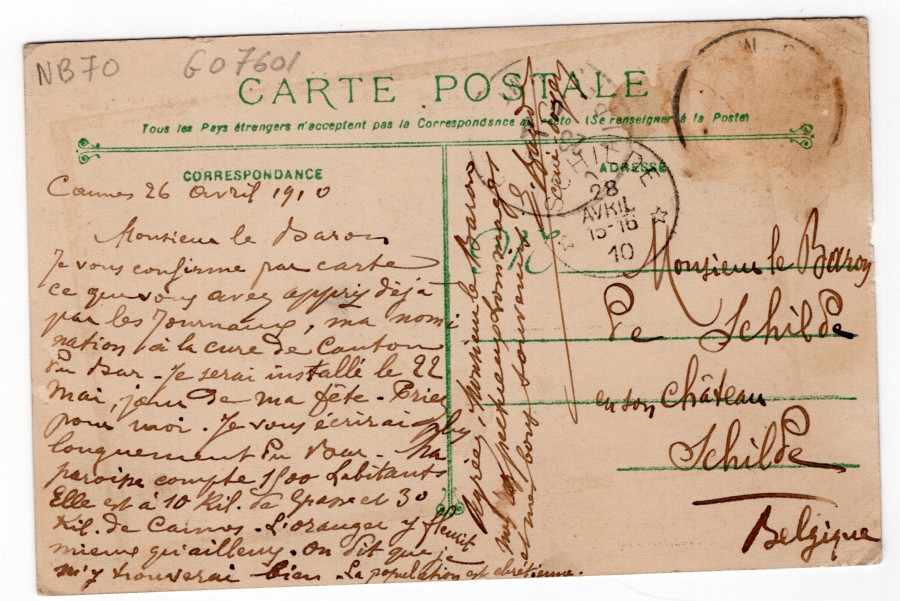 NB70 G07601
CARTE POSTALE
Tous les Pays étrangers n'acceptent pas la Correspondance au recto (Se renseigner à la Poste)
CORRESPONDANCE
Cannes 26 Avril 1910
Monsieur le Baron
Je vous confirme par carte
ce que vous avez appris déjà
par les Journaux, ma nomi
nation à la cure de Canton
du Bar - Je serai installé le 22
Mai, jour de ma fête - Priez
pour moi. Je vous écrirai plus
longuement du Bar - Ma
paroisse compte 1500 habitants
Elle est à 10 Kil. de Grasse et 30
Kil. de Cannes. L'oranger y fleurit
mieux qu'ailleurs. On dit que je
m'y trouverai bien. La population est chrétienne.
Agréez, Monsieur le Baron
mes respectueux hommages
et mon bon souvenir
ADRESSE
SCHILDE
28
AVRIL
15-16
10
Monsieur le Baron
de Schilde
en son château
Schilde
Belgique